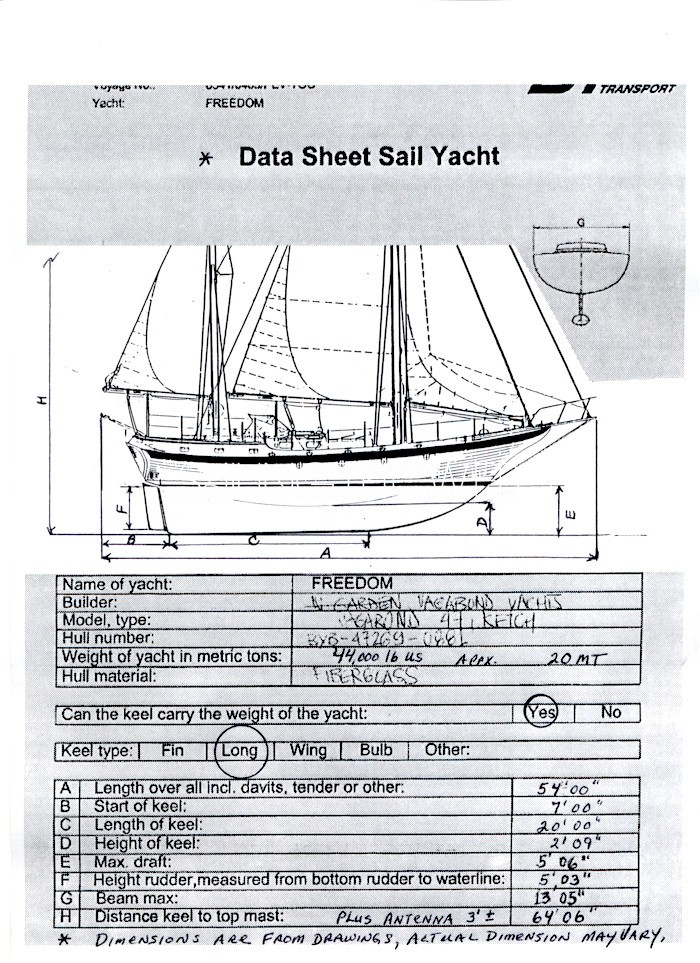 Yacht: FREEDOM
TRANSPORT
* Data Sheet Sail Yacht
G
H
F
D
E
B
C
A
Name of yacht: FREEDOM
Builder: W. GARDEN VAGABOND YACHTS
Model, type: VAGABOND 47, KETCH
Hull number:
Weight of yacht in metric tons: 44,000 lb US APPX. 20 MT
Hull material: FIBERGLASS
Can the keel carry the weight of the yacht: Yes No
Keel type: Fin Long Wing Bulb Other:
A Length over all incl. davits, tender or other: 54'00"
B Start of keel: 7'00"
C Length of keel: 20'00"
D Height of keel: 2'09"
E Max. draft: 5'06"
F Height rudder,measured from bottom rudder to waterline: 5'03"
G Beam max: 13'05"
H Distance keel to top mast: PLUS ANTENNA 3'± 64'06"
* DIMENSIONS ARE FROM DRAWINGS, ACTUAL DIMENSION MAY VARY,